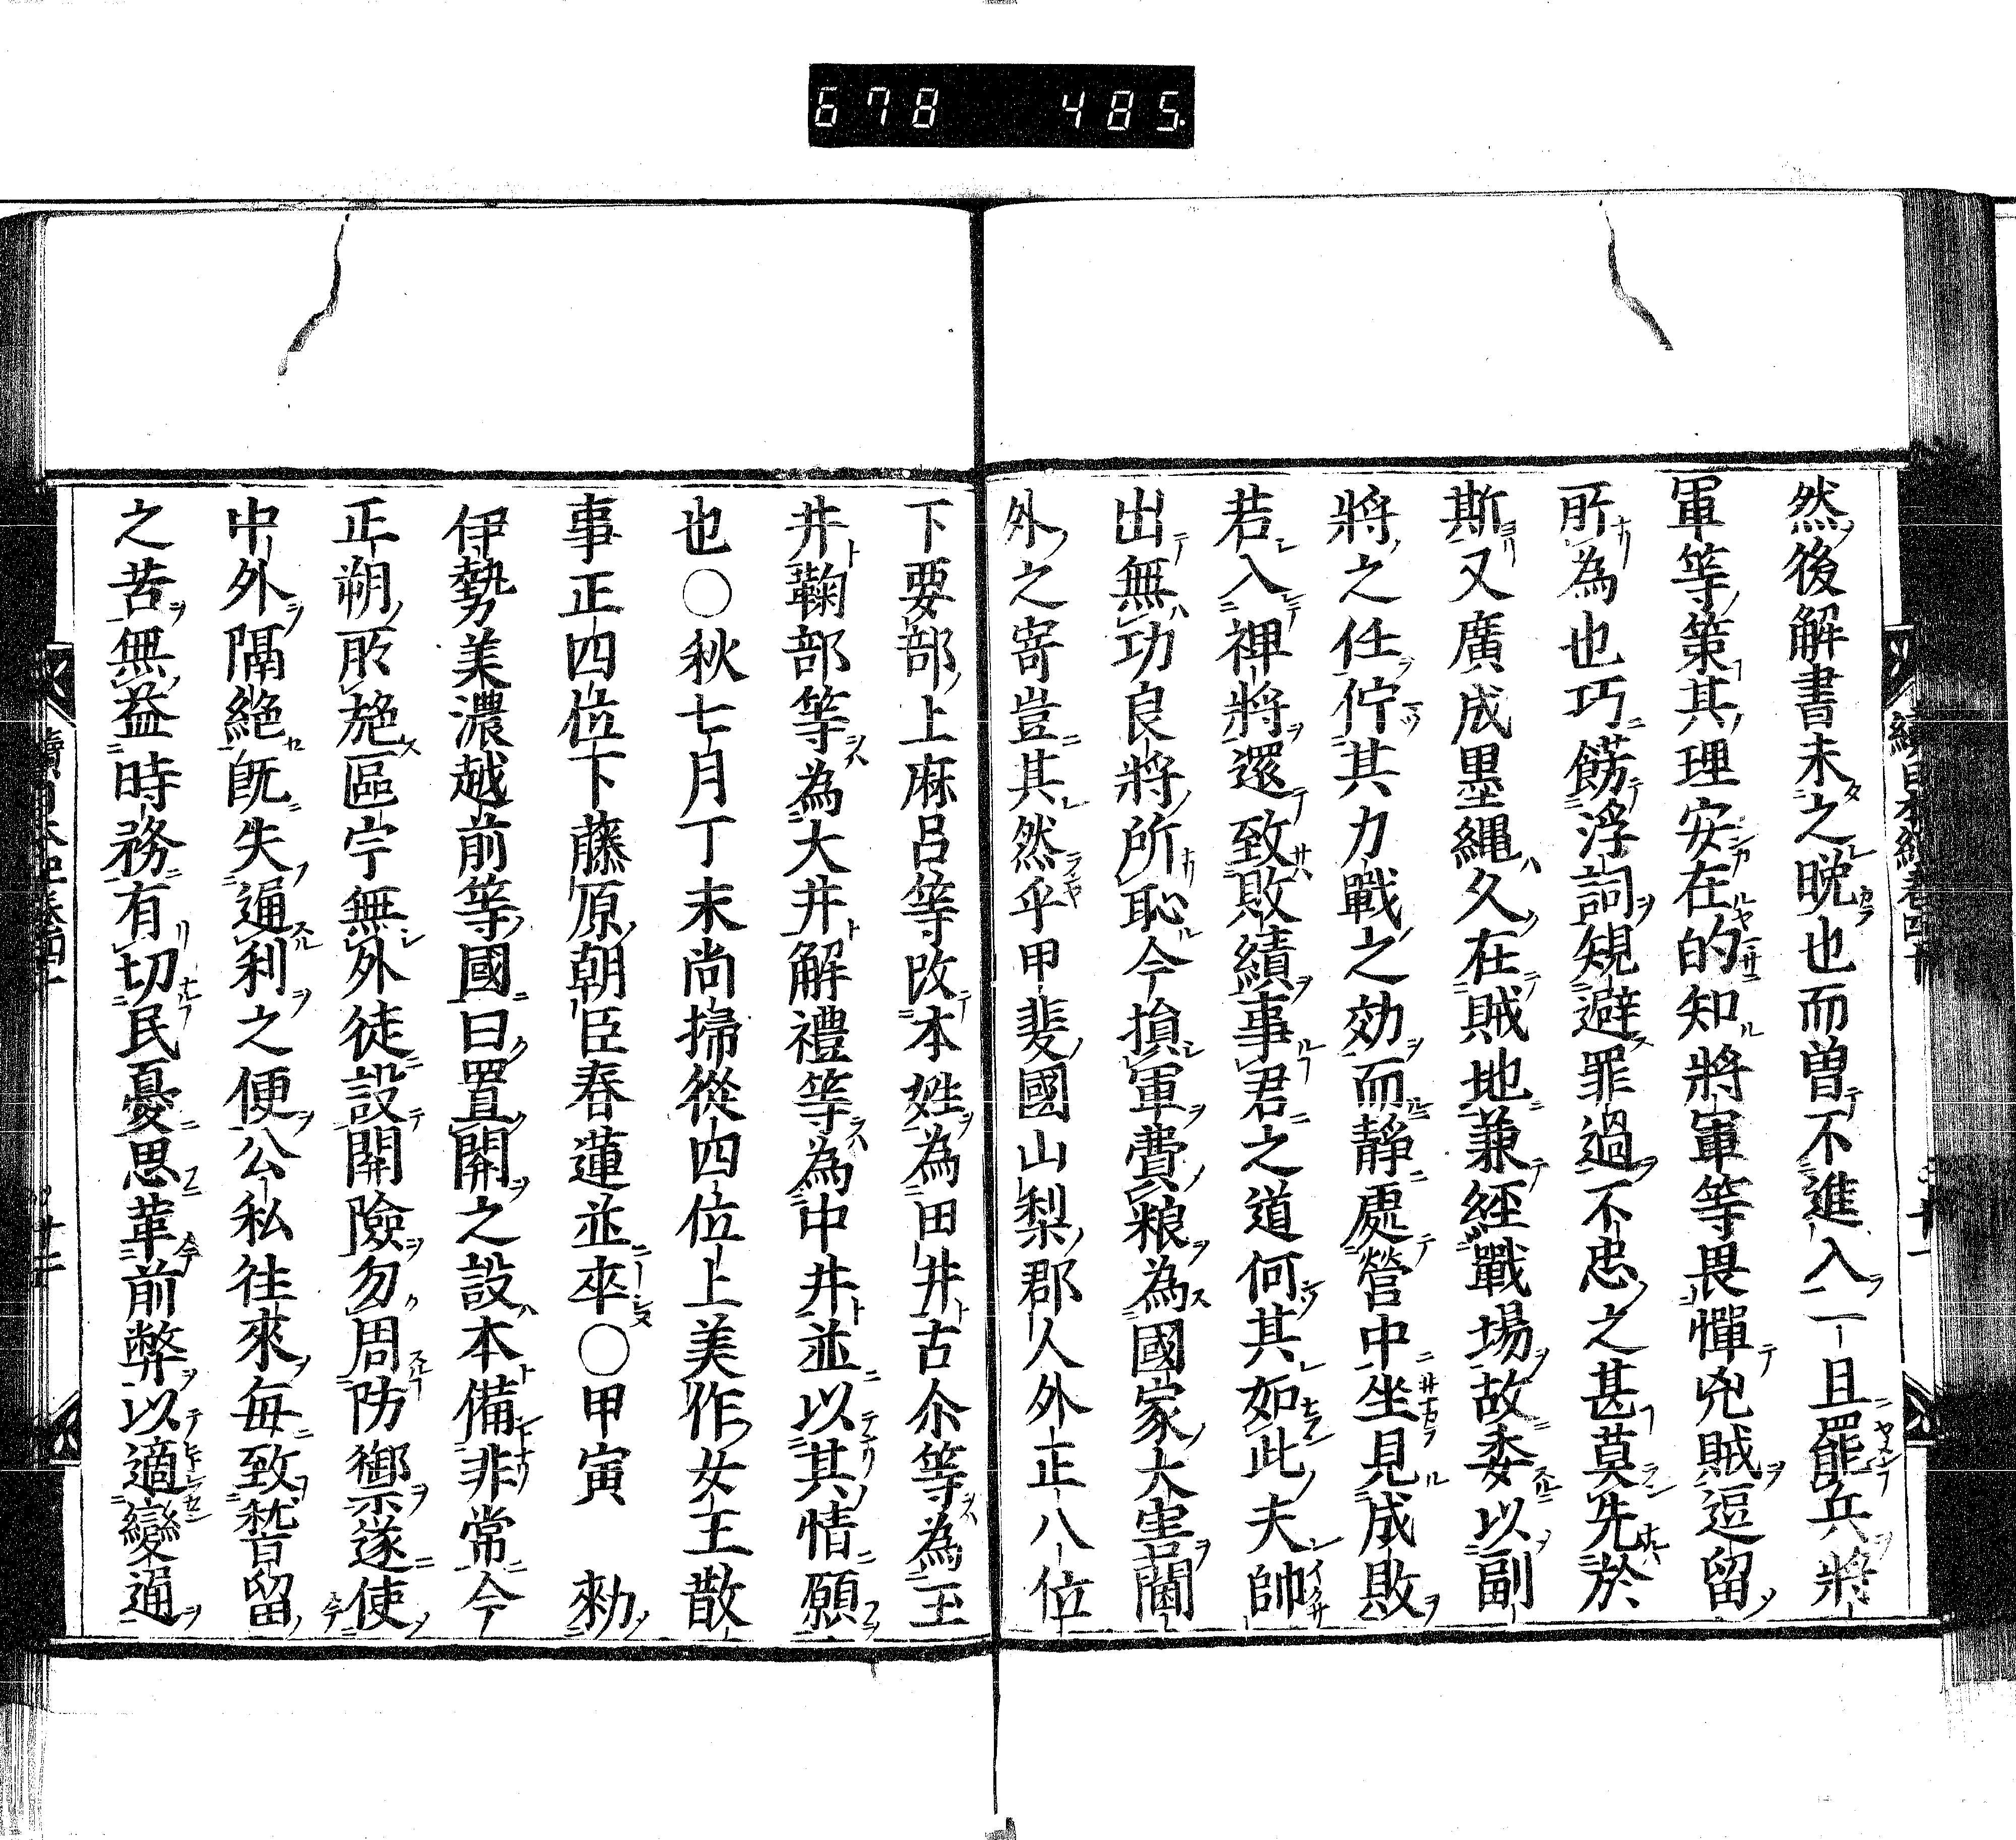 678 485.
然後解書未之晩也而曽不進入一且罷兵將
軍等策其理安在的知將軍等畏憚兇賊逗留
所為也巧餝浮詞規避罪過不忠之甚莫先於
斯又廣成墨縄久在賊地兼經戰場故委以副
將之任佇其力戰之効而静處營中坐見成敗
若入裨將還致敗績事君之道何其如此夫師
出無功良將所恥今損軍費粮為國家大害閫
外之寄豈其然乎甲斐國山梨郡人外正八位
下要部上麻呂等改本姓為田井古尒等為玉
井鞠部等為大井解禮等為中井並以其情願
也〇秋七月丁未尚掃從四位上美作女王散
事正四位下藤原朝臣春蓮並卒〇甲寅　勅
伊勢美濃越前等國曰置関之設本備非常今
正朔所施區宇無外徒設関險勿周防禦遂使
中外隔絶既失通利之便公私往來毎致稽留
之苦無益時務有切民憂思革前弊以適變通